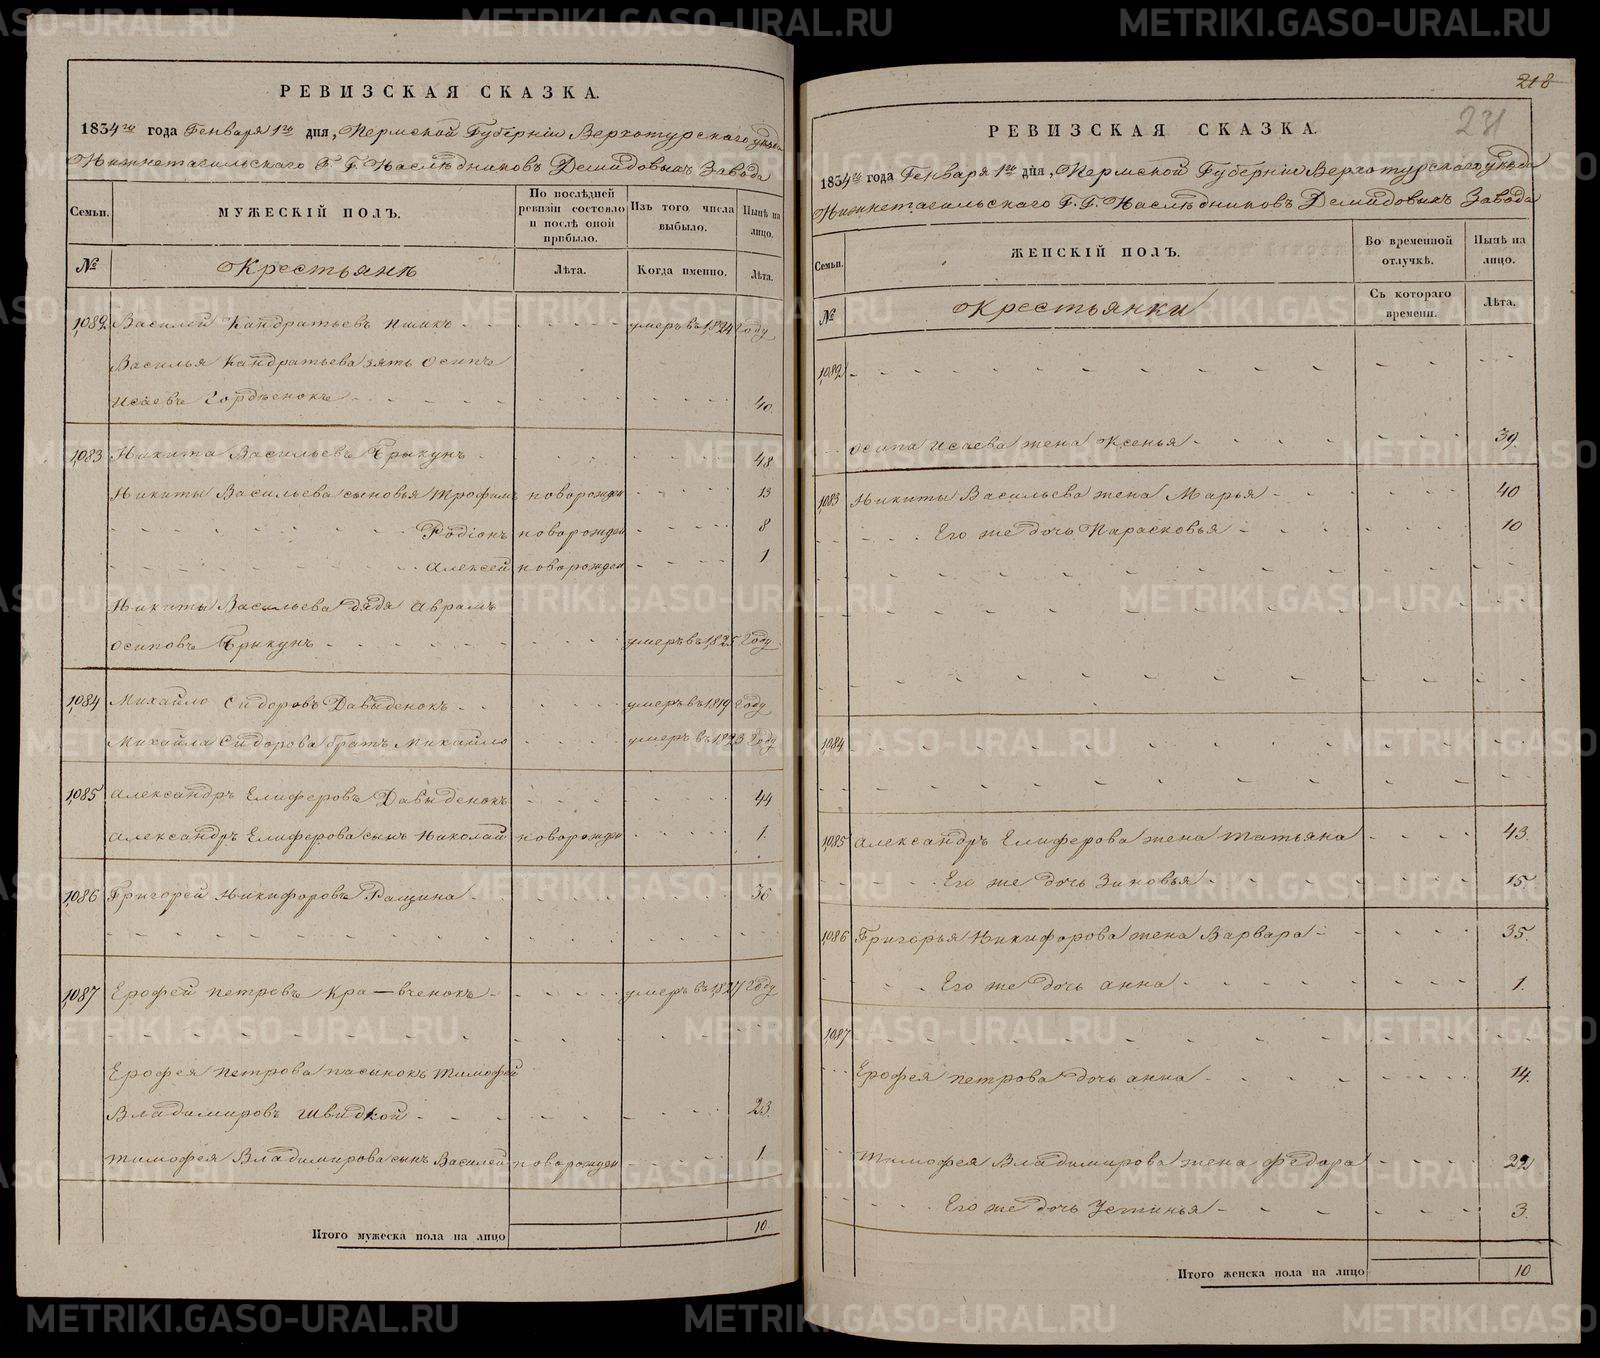 РЕВИЗСКАЯ СКАЗКА.
1834го года Генваря 1го дня, Пермской Губерніи Верхотурскаго уѣзда
Нижнетагильскаго Г. Г. Наслѣдниковъ Демидовыхъ Завода
Семьи.
МУЖЕСКІЙ ПОЛЪ.
По послѣдней ревизіи состояло и послѣ оной прибыло.
Изъ того числа выбыло.
Нынѣ на лицо.
№
Крестьянѣ
Лѣта.
Когда именно.
Лѣта.
1082 Василей Кандратьевъ умеръ въ 1824 Году
Василья Кандратьева зять Осипъ
Исаевъ Гордѣенокъ 40.
1083 Никита Васильевъ 48
Никиты Васильева сыновья Трофимъ новорожден 13
Родіонъ новорожден 8
Алексей новорожден 1
Никиты Васильева дядя Аврамъ
Осиповъ умеръ въ 1825 Году
1084 Михайло Сидоровъ Давыденокъ умеръ въ 1819 Году
Михайла Сидорова братъ Михайло умеръ въ 1823 Году
1085 Александръ Елиферовъ Давыденокъ 44
Александръ Елиферова сынъ Николай новорожден 1.
1086 Григорей Никифоровъ 36
1087 Ерофей Петровъ Кра—вченокъ умеръ въ 1827 Году
Ерофея Петрова пасынокъ Тимофей
Владимировъ Швидкой 23.
Тимофея Владимирова сынъ Василей новорожден 1
Итого мужеска пола на лицо 10.
218
231
РЕВИЗСКАЯ СКАЗКА.
1834го года Генваря 1го дня, Пермской Губерніи Верхотурскаго уѣзда
Нижнетагильскаго Г. Г. Наслѣдниковъ Демидовыхъ Завода
Семьи.
ЖЕНСКІЙ ПОЛЪ.
Во временной отлучкѣ.
Нынѣ на лицо.
№
Крестьянки
Съ котораго времени.
Лѣта.
1082
Осипа Исаева жена Ксенья 39.
1083 Никиты Васильева жена Марья 40
Его же дочь Парасковья 10
1084
1085 Александръ Елиферова жена Татьяна 43.
Его же дочь Зиновья 15.
1086 Григорья Никифорова жена Варвара 35.
Его же дочь Анна 1.
1087
Ерофея Петрова дочь Анна 14.
Тимофея Владимирова жена Федора 22
Его же дочь Устинья 3.
Итого женска пола на лицо 10
METRIKI.GASO-URAL.RU